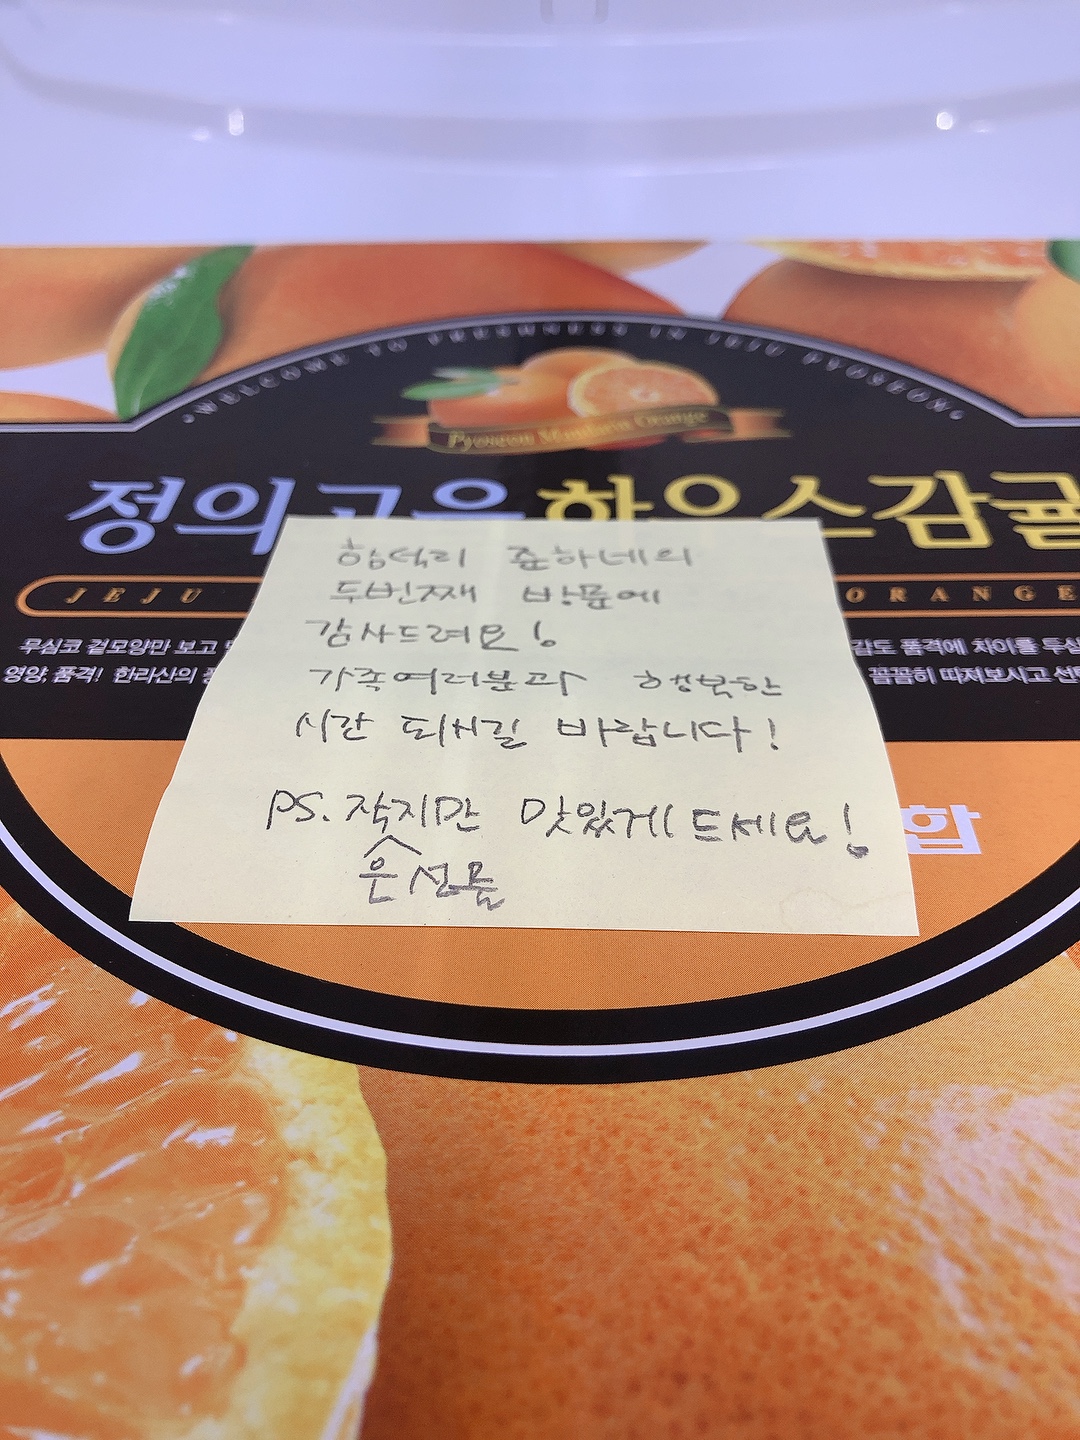 WELCOME TO FRESHNESS IN JEJU PYOSEON
Pyoseon Mandarin Orange
정의고을 하우스감귤
JEJU ORANGE
무심코 겉모양만 보고 감도 품격에 차이를
영양, 품격! 한라산의 꼼꼼히 따져보시고
합
함덕리 준하네의
두번째 방문에
감사드려요!
가족여러분과 행복한
시간 되시길 바랍니다!
PS. 작지만 맛있게 드세요!
은 선물